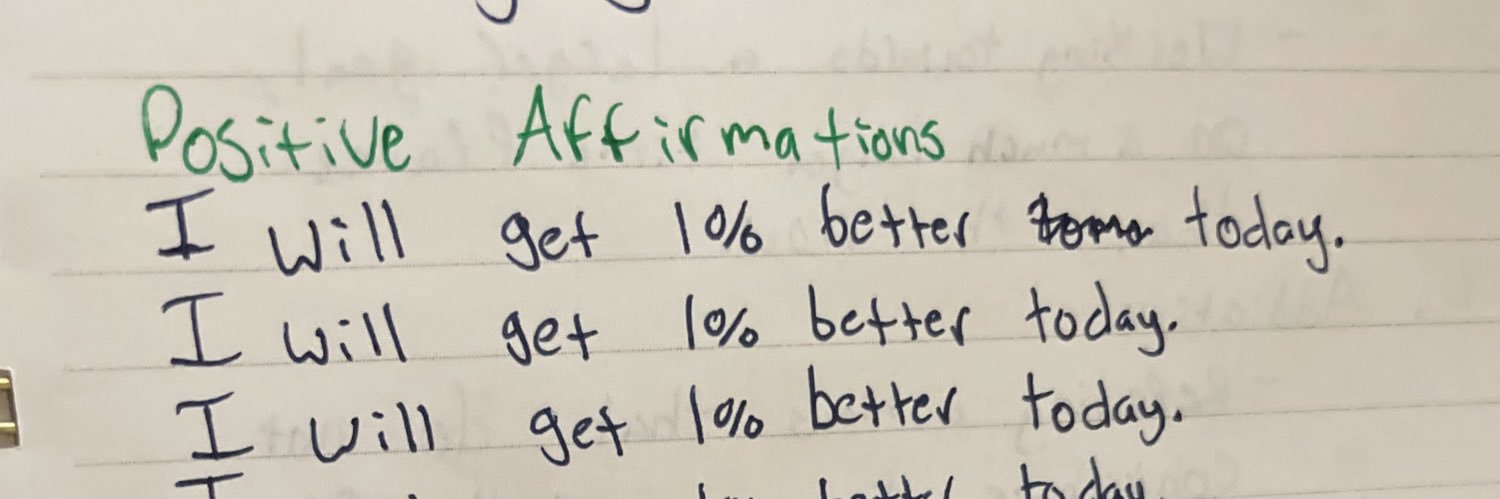 Positive Affirmations
I will get 1% better today.
I will get 1% better today.
I will get 1% better today.
better today